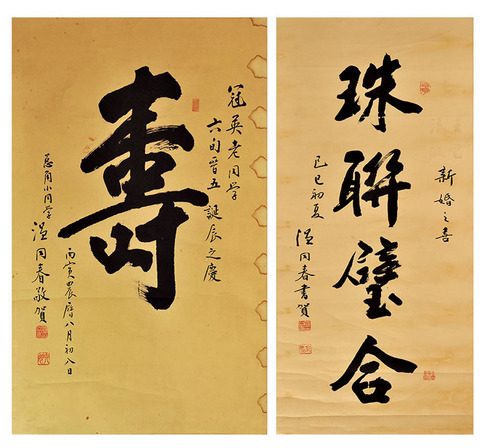 冠英老同学
六旬晋五誕辰之慶
壽
丙寅農曆八月初八日
总角小同学
温同春敬賀
新婚之喜
珠聯璧合
己巳初夏
温同春書賀